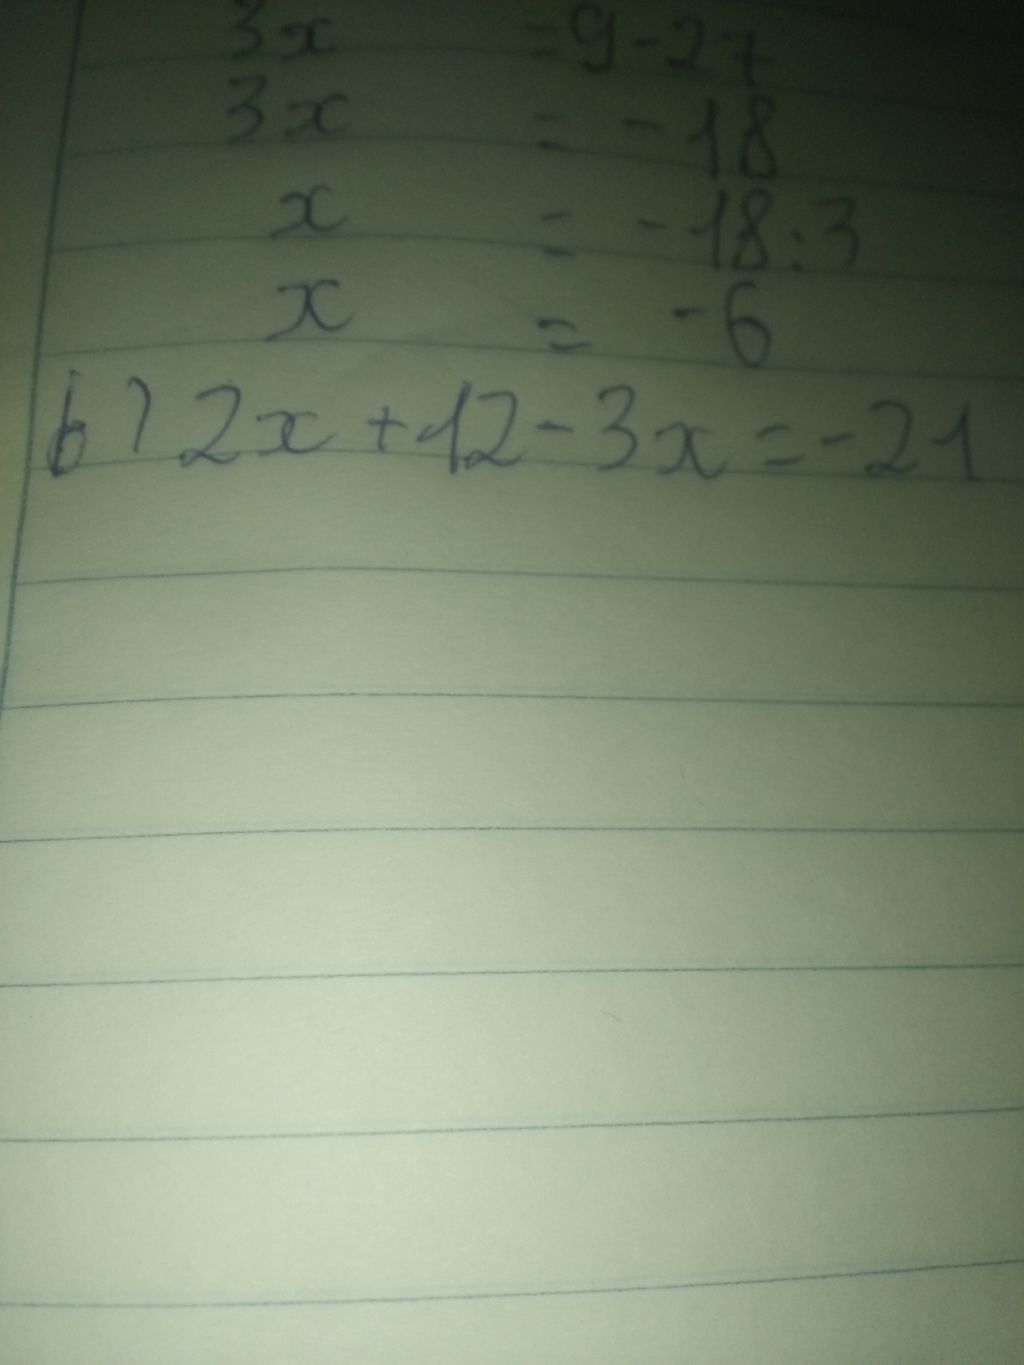 3x = 9 - 27
3x = - 18
x = - 18 : 3
x = - 6
b) 2x + 12 - 3x = - 21